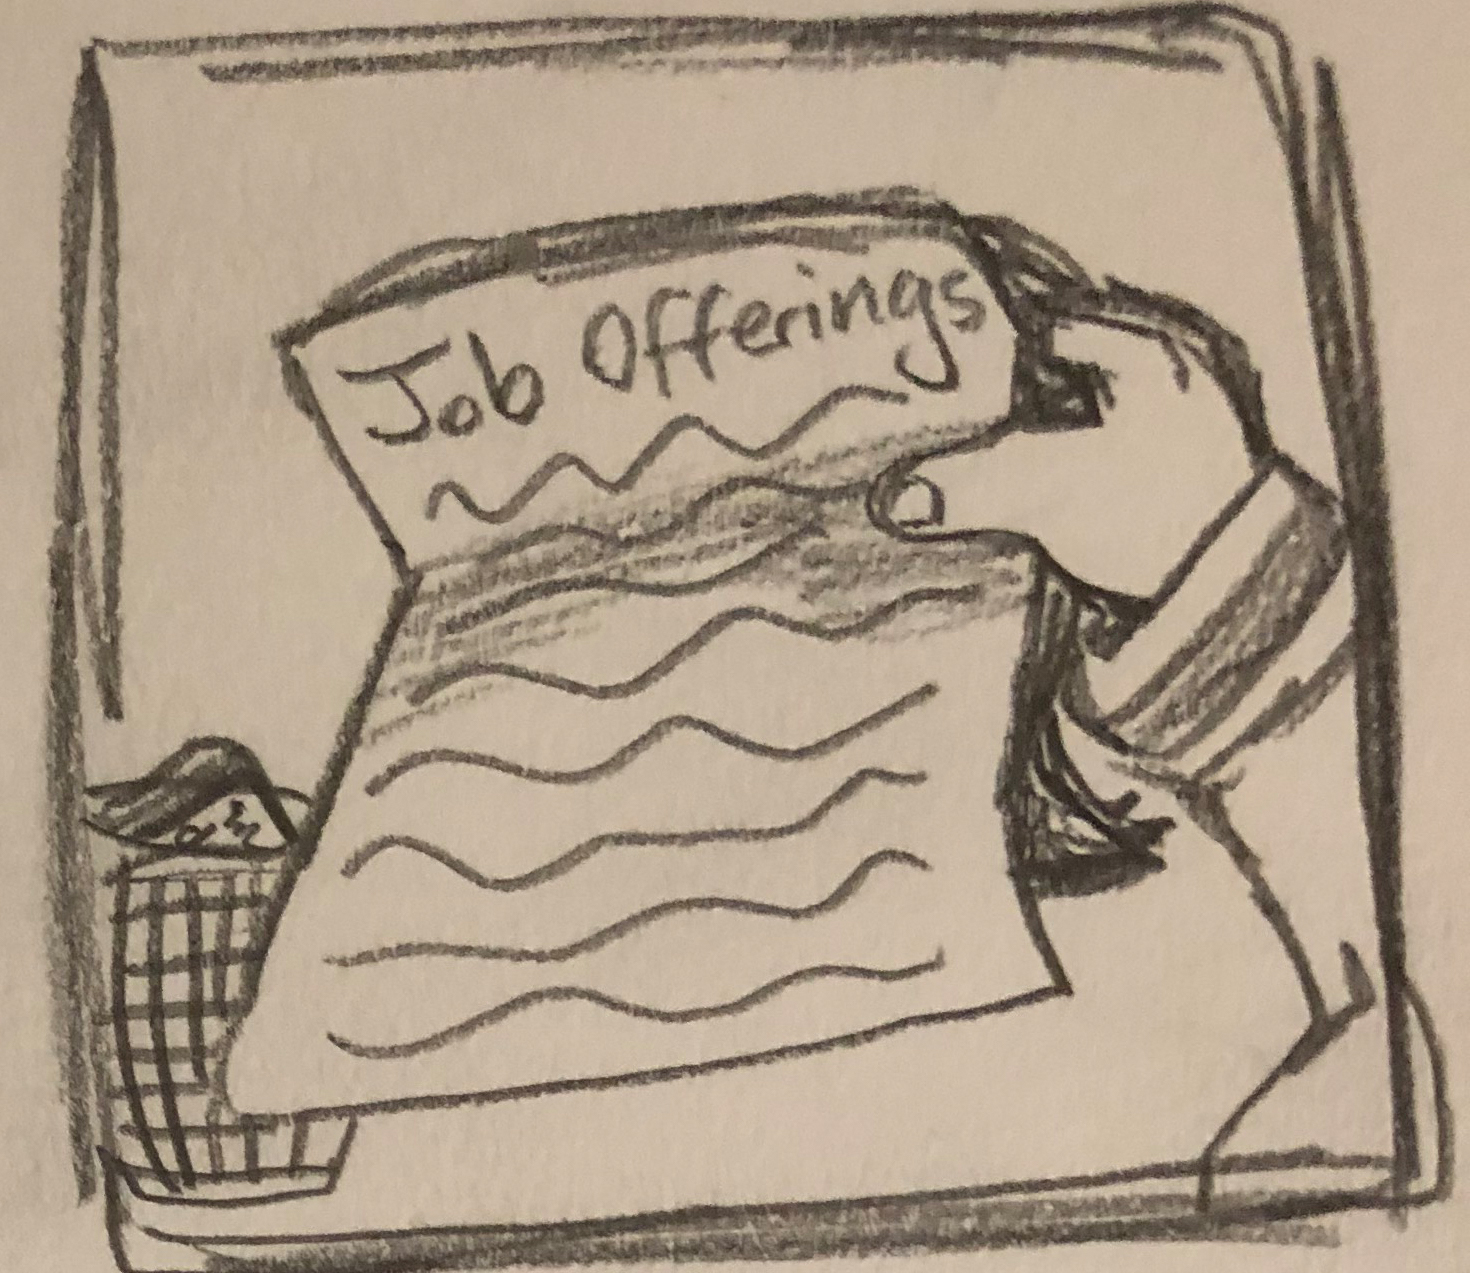 Job Offerings